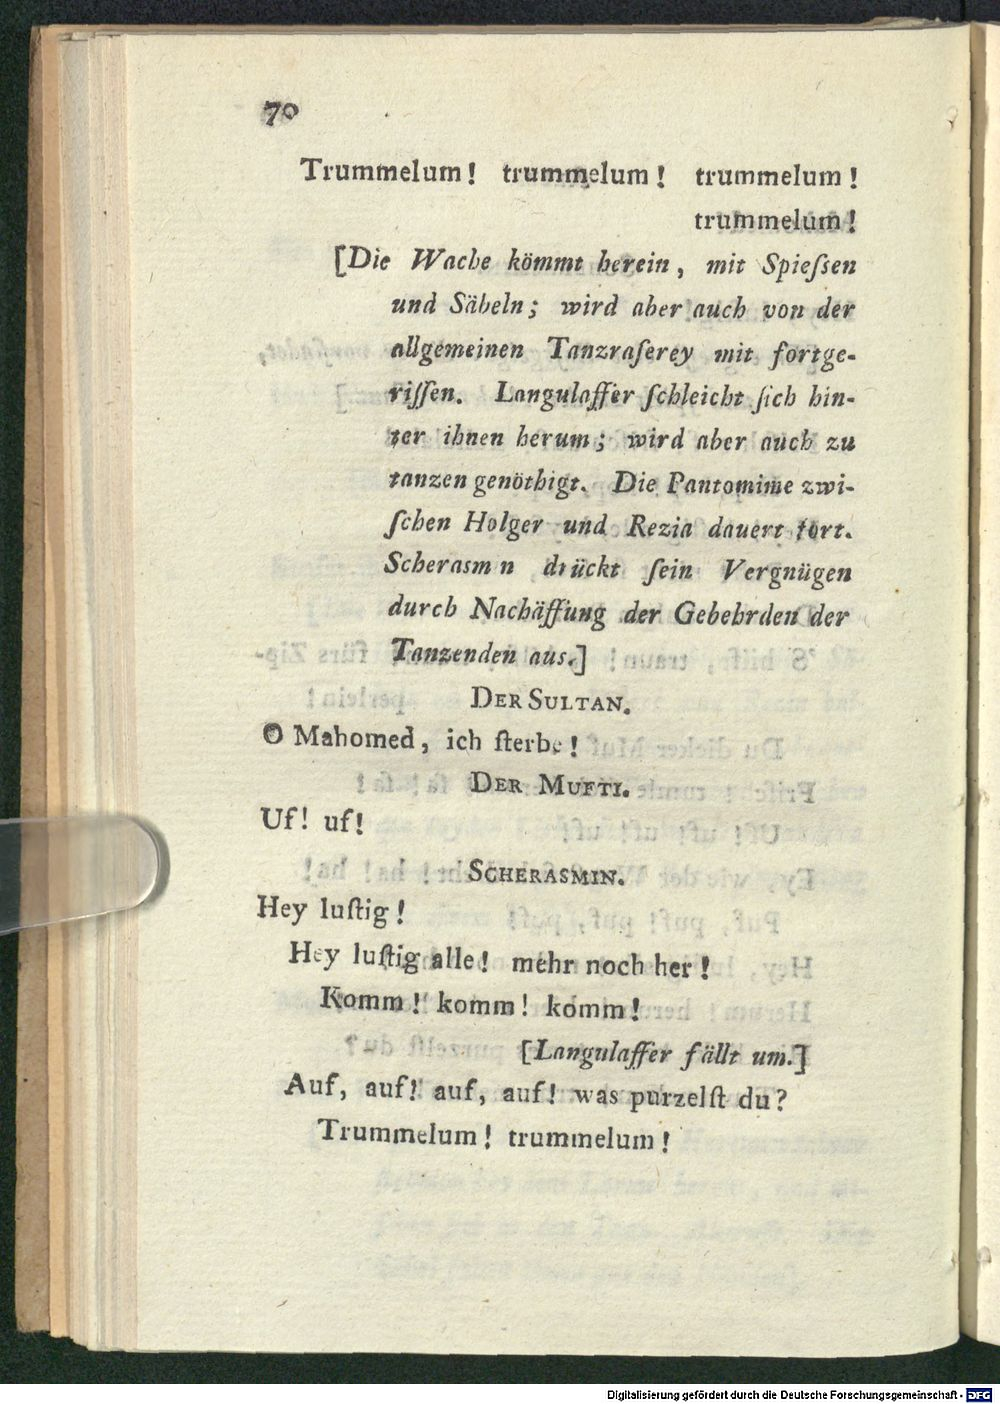 70
Trummelum! trummelum! trummelum!
trummelum!
[Die Wache kömmt herein, mit Spieſsen
und Säbeln; wird aber auch von der
allgemeinen Tanzraſerey mit fortge-
riſſen. Langulaffer ſchleicht ſich hin-
ter ihnen herum; wird aber auch zu
tanzen genöthigt. Die Pantomime zwi-
ſchen Holger und Rezia dauert fort.
Scherasm n drückt ſein Vergnügen
durch Nachäffung der Gebehrden der
Tanzenden aus.]
DER SULTAN.
O Mahomed, ich ſterbe!
DER MUFTI.
Uf! uf!
SCHERASMIN.
Hey luſtig!
Hey luſtig alle! mehr noch her!
Komm! komm! komm!
[Langulaffer fällt um.]
Auf, auf! auf, auf! was purzelſt du?
Trummelum! trummelum!
Digitalisierung gefördert durch die Deutsche Forschungsgemeinschaft - DFG